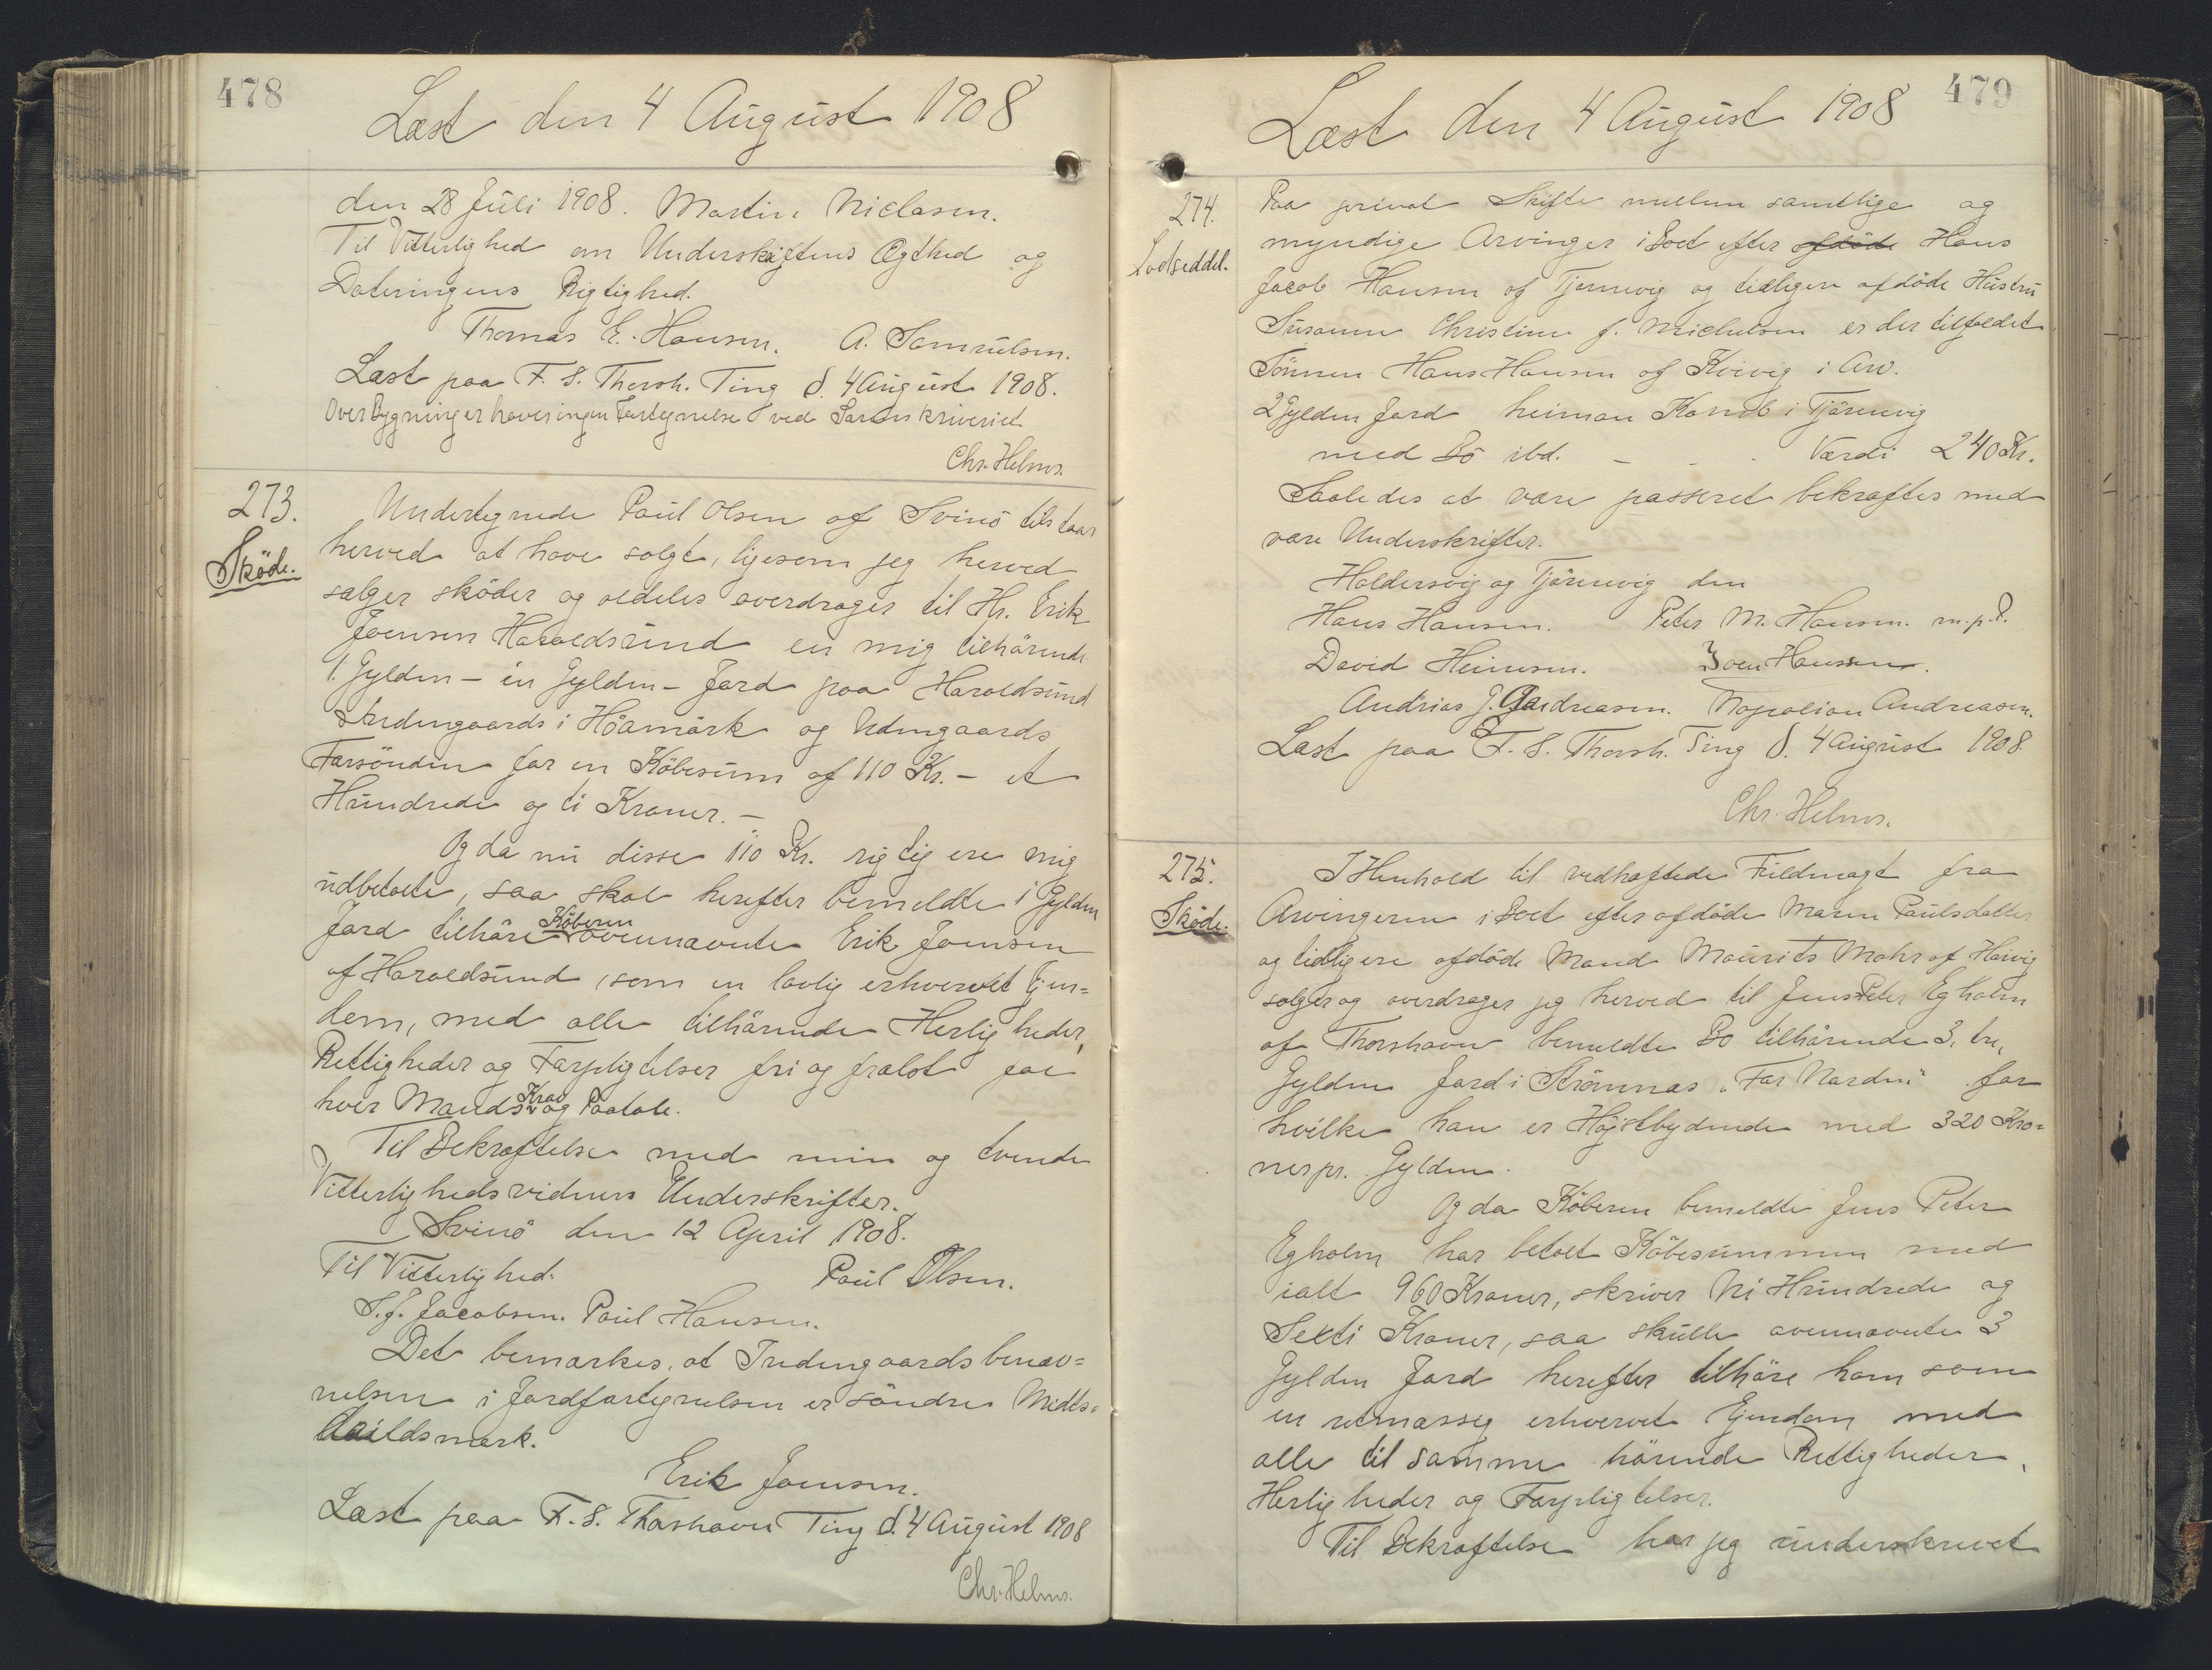 478
Læst den 4 August 1908
den 28 Juli 1908. Martin Niclasen.
Til Vitterlighed om Underskriftens Ægthed og
Dateringens Rigtighed.
Thomas E. Hansen. A. Samuelsen.
Læst paa F. S. Thorsh. Ting d. 4 August 1908.
Over Bygninger haves ingen Fortegnelse ved Sorenskriveriet
Chr. Helms.
273.
Sköde.
Undertegnede Poul Olsen af Svinö tilstaar
herved at have solgt, ligesom jeg herved
sælger sköder og aldeles overdrager til Hr. Erik
Joensen Haraldsund en mig tilhörende
1 Gylden - en Gylden - Jord paa Haraldsund
Indengaards i Höamörk og Udengaards
Farsönden for en Köbesum af 110 Kr. - et
Hundrede og ti Kroner. -
Og da nu disse 110 Kr. rigtig ere mig
udbetalte, saa skal herefter bemeldte 1 Gylden
Jord tilhöre Köberen ovennævnte Erik Joensen
af Haraldsund, som en lovlig erhvervet Ejen=
dom, med alle tilhörende Herligheder,
Rettigheder og Forpligtelser fri og frelst for
hver Mands Krav og Paatale.
Til Bekræftelse med min og tvende
Vitterlighedsvidners Underskrifter.
Svinö den 12 April 1908.
Til Vitterlighed. Poul Olsen.
S. J. Jacobsen. Poul Hansen.
Det bemærkes, at Indengaardsbenæv=
nelsen i Jordfortegnelsen er söndre Midts=
Læst paa F. S. Thorshavn Ting d. 4 August 1908
Erik Joensen.
Chr. Helms.
479
Læst den 4 August 1908
274.
Lodseddel.
Paa privat Skifte mellem samtlige og
myndige Arvinger i Boet efter afdöde Hans
Jacob Hansen af Tjörnevig og tidligere afdöde Hustru
Susanne Christine f. Michelsen er der tilfaldet
Sönnen Hans Hansen af Kvivig i Arv.
2 Gylden Jord heiman Kamb i Tjörnevig
med Bö ibd. - - - Værdi 240 Kr.
Saaledes at være passeret bekræftes med
vore Underskrifter.
Haldersvig og Tjörnevig den
Hans Hansen. Peter M. Hansen. m.p.P.
David Heinesen. Joen Hansen.
Andrias J. Andreasen. Napolion Andreasen.
Læst paa F. S. Thorsh. Ting d. 4 August 1908.
Chr. Helms.
275.
Sköde.
I Henhold til vedhæftede Fuldmagt fra
Arvingerne i Boet efter afdöde Maren Poulsdatter
og tidligere afdöde Mand Mourits Mohr af Hoivig
sælger og overdrager jeg herved til Jens Peter Egholm
af Thorshavn bemeldte Bo tilhörende 3, tre,
Gylden Jord i Strömnæs "For Norden" for
hvilke han er Højstbydende med 320 Kro=
ner pr. Gylden.
Og da Köberen bemeldte Jens Peter
Egholm har betalt Köbesummen med
ialt 960 Kroner, skriver Ni Hundrede og
Sexti Kroner, saa skulle ovennævnte 3
Gylden Jord herefter tilhöre ham som
en retmæssig erhvervet Ejendom med
alle til samme hörende Rettigheder,
Herligheder og Forpligtelser.
Til Bekræftelse har jeg underskrevet